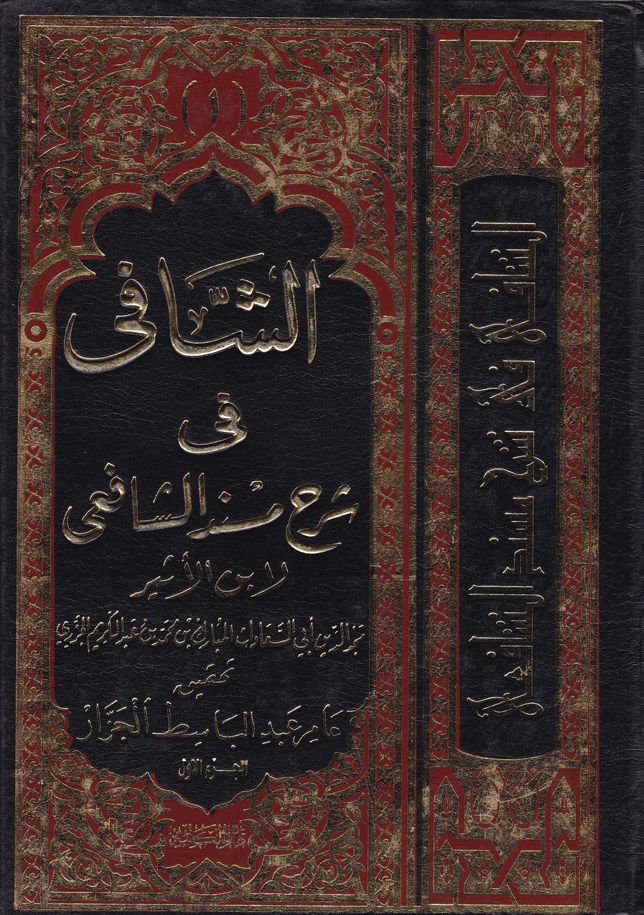 الشَّافى
فى
شرح مسند الشافعى
لابن الأثير
مجد الدين أبي السعادات المبارك بن محمد بن عبد الكريم الجزري
تحقيق
عامر عبد الباسط الجزار
الجزء الأول
الشافى فى شرح مسند الشافعى